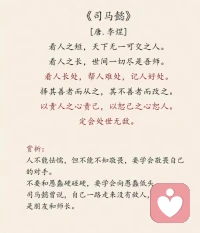 《司马懿》
[唐.李煜]
看人之短，天下无一可交之人。
看人之长，世间一切尽是吾师。
看人长处，帮人难处，记人好处。
择其善者而从之，其不善者而改之。
以责人之心责己，以恕己之心恕人。
定会处世无敌。
赏析：
人不能怯懦，但不能不知敬畏，要学会敬畏自己
的对手。
不要和愚蠢硬碰硬，要学会向愚蠢低头
司马懿曾说，自己一路走来没有敌人，
是朋友和师长。